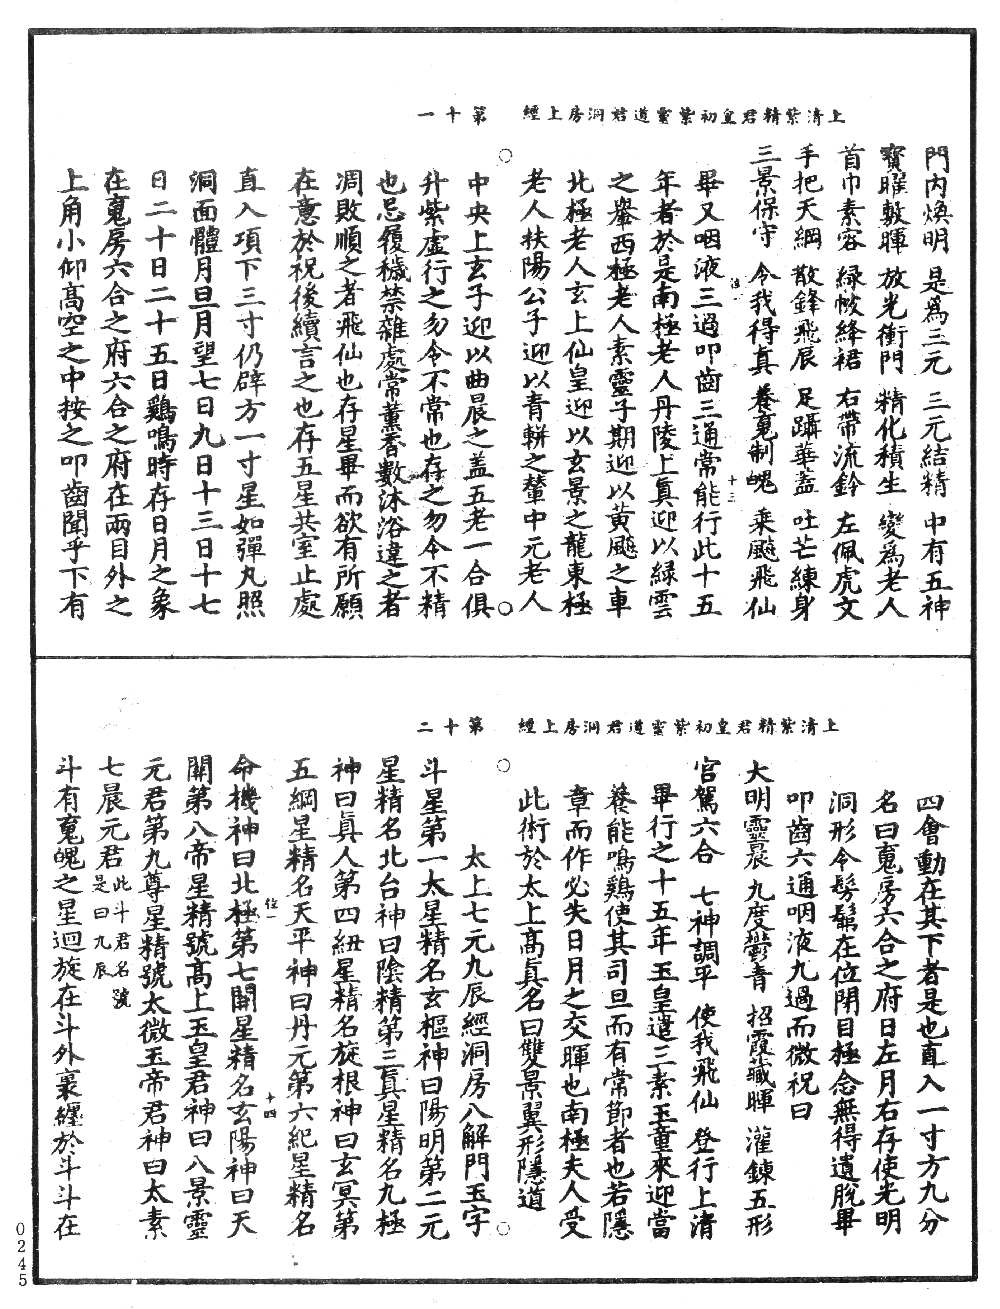 上清紫精君皇初紫靈道君洞房上經　第十一
門內煥明　是為三元　三元結精　中有五神
寶曜敷暉　放光衝門　精化積生　變為老人
首巾素容　綠帔絳裙　右帶流鈴　左佩虎文
手把天綱　散鋒飛辰　足躡華蓋　吐芒練身
三景保守　令我得真　養䰟制魄　乘飈飛仙
位一　十三
畢又咽液三過叩齒三通常能行此十五
年者於是南極老人丹陵上真迎以綠雲
之轝西極老人素靈子期迎以黃飈之車
北極老人玄上仙皇迎以玄景之龍東極
老人扶陽公子迎以青軿之輦中元老人
中央上玄子迎以曲晨之蓋五老一合俱
升紫虛行之勿令不常也存之勿令不精
也忌履穢禁雜處常薰香數沐浴違之者
凋敗順之者飛仙也存星畢而欲有所願
在意於祝後續言之也存五星共室止處
直入項下三寸仍辟方一寸星如彈丸照
洞面體月旦月望七日九日十三日十七
日二十日二十五日鷄鳴時存日月之象
在䰟房六合之府六合之府在兩目外之
上角小仰高空之中按之叩齒聞乎下有
上清紫精君皇初紫靈道君洞房上經　第十二
四會動在其下者是也直入一寸方九分
名曰䰟房六合之府日左月右存使光明
洞形令髣髴在位閉目極念無得遺脫畢
叩齒六通咽液九過而微祝曰
大明靈宸　九度鬱青　招霞藏暉　灌鍊五形
官駕六合　七神調平　使我飛仙　登行上清
畢行之十五年玉皇遣三素玉童來迎當
養能鳴鷄使其司旦而有常節者也若隱
章而作必失日月之交暉也南極夫人受
此術於太上高真名曰雙景翼形隱道
太上七元九辰經洞房八解門玉字
斗星第一太星精名玄樞神曰陽明第二元
星精名北台神曰陰精第三真星精名九極
神曰真人第四紐星精名旋根神曰玄冥第
五綱星精名天平神曰丹元第六紀星精名
位一　十四
命機神曰北極第七關星精名玄陽神曰天
關第八帝星精號高上玉皇君神曰八景靈
元君第九尊星精號太微玉帝君神曰太素
七晨元君此斗君名號是曰九辰
斗有䰟魄之星迴旋在斗外裹纏於斗斗在
0245